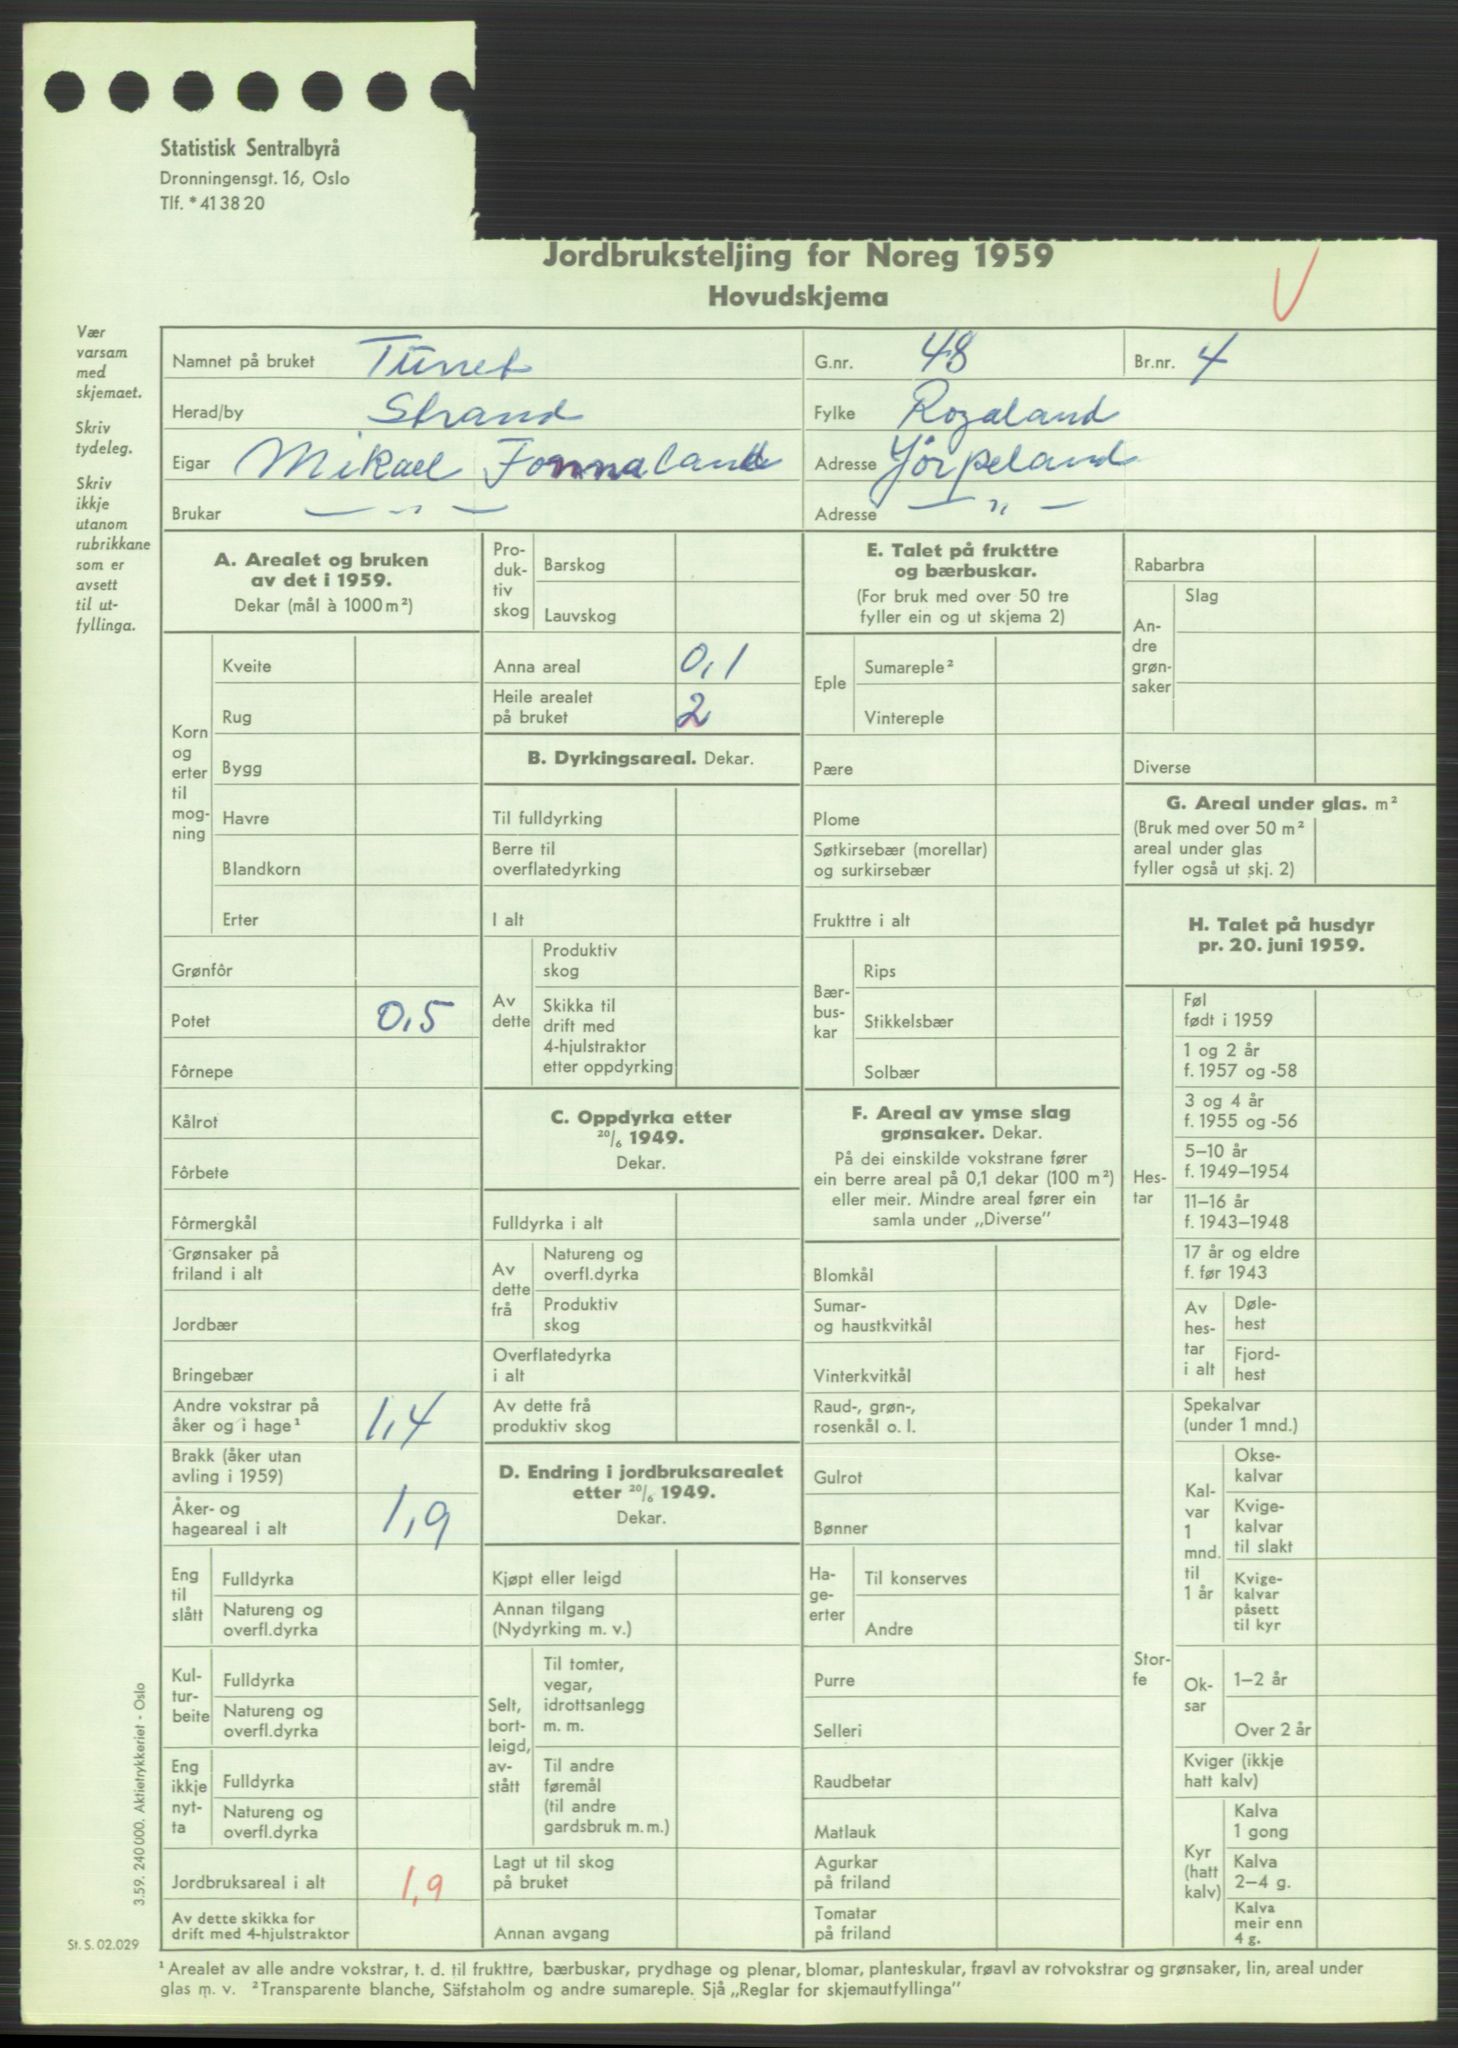 Statistisk Sentralbyrå
Dronningensgt. 16, Oslo
Tlf. * 41 38 20
Jordbruksteljing for Noreg 1959
Hovudskjema
Vær
varsam
med
skjemaet.
Skriv
tydeleg.
Skriv
ikkje
utanom
rubrikkane
som er
avsett
til ut-
fyllinga.
Namnet på bruket Tunet G.nr. 48 Br.nr. 4
Herad/by Strand Fylke Rogaland
Eigar Mikael Adresse Jørpeland
Brukar — „ — Adresse — „ —
A. Arealet og bruken
av det i 1959.
Dekar (mål à 1000 m²)
Korn
og
erter
til
mog-
ning
Kveite
Rug
Bygg
Havre
Blandkorn
Erter
Grønfôr
Potet 0,5
Fôrnepe
Kålrot
Fôrbete
Fôrmergkål
Grønsaker på
friland i alt
Jordbær
Bringebær
Andre vokstrar på
åker og i hage¹ 1,4
Brakk (åker utan
avling i 1959)
Åker- og
hageareal i alt 1,9
Eng
til
slått
Fulldyrka
Natureng og
overfl.dyrka
Kul-
tur-
beite
Fulldyrka
Natureng og
overfl.dyrka
Eng
ikkje
nyt-
ta
Fulldyrka
Natureng og
overfl.dyrka
Jordbruksareal i alt 1,9
Av dette skikka for
drift med 4-hjulstraktor
Pro-
duk-
tiv
skog
Barskog
Lauvskog
Anna areal 0,1
Heile arealet
på bruket 2
B. Dyrkingsareal. Dekar.
Til fulldyrking
Berre til
overflatedyrking
I alt
Av
dette
Produktiv
skog
Skikka til
drift med
4-hjulstraktor
etter oppdyrking
C. Oppdyrka etter
20/6 1949.
Dekar.
Fulldyrka i alt
Av
dette
frå
Natureng og
overfl.dyrka
Produktiv
skog
Overflatedyrka
i alt
Av dette frå
produktiv skog
D. Endring i jordbruksarealet
etter 20/6 1949.
Dekar.
Kjøpt eller leigd
Annan tilgang
(Nydyrking m. v.)
Selt,
bort-
leigd,
av-
stått
Til tomter,
vegar,
idrottsanlegg
m. m.
Til andre
føremål
(til andre
gardsbruk m. m.)
Lagt ut til skog
på bruket
Annan avgang
E. Talet på frukttre
og bærbuskar.
(For bruk med over 50 tre
fyller ein og ut skjema 2)
Eple
Sumareple²
Vintereple
Pære
Plome
Søtkirsebær (morellar)
og surkirsebær
Frukttre i alt
Bær-
bus-
kar
Rips
Stikkelsbær
Solbær
F. Areal av ymse slag
grønsaker. Dekar.
På dei einskilde vokstrane fører
ein berre areal på 0,1 dekar (100 m²)
eller meir. Mindre areal fører ein
samla under „Diverse”
Blomkål
Sumar-
og haustkvitkål
Vinterkvitkål
Raud-, grøn-,
rosenkål o. l.
Gulrot
Bønner
Ha-
ge-
erter
Til konserves
Andre
Purre
Selleri
Raudbetar
Matlauk
Agurkar
på friland
Tomatar
på friland
Rabarbra
An-
dre
grøn-
saker
Slag
Diverse
G. Areal under glas. m²
(Bruk med over 50 m²
areal under glas
fyller også ut skj. 2)
H. Talet på husdyr
pr. 20. juni 1959.
Hes-
tar
Føl
født i 1959
1 og 2 år
f. 1957 og -58
3 og 4 år
f. 1955 og -56
5–10 år
f. 1949–1954
11–16 år
f. 1943–1948
17 år og eldre
f. før 1943
Av
hes-
tar
i alt
Døle-
hest
Fjord-
hest
Stor-
fe
Spekalvar
(under 1 mnd.)
Kal-
var
1
mnd.
til
1 år
Okse-
kalvar
Kvige-
kalvar
til slakt
Kvige-
kalvar
påsett
til kyr
Ok-
sar
1–2 år
Over 2 år
Kviger (ikkje
hatt kalv)
Kyr
(hatt
kalv)
Kalva
1 gong
Kalva
2–4 g.
Kalva
meir enn
4 g.
3.59. 240 000. Aktietrykkeriet - Oslo
St. S. 02.029
¹ Arealet av alle andre vokstrar, t. d. til frukttre, bærbuskar, prydhage og plenar, blomar, planteskular, frøavl av rotvokstrar og grønsaker, lin, areal under
glas m. v. ² Transparente blanche, Säfstaholm og andre sumareple. Sjå „Reglar for skjemautfyllinga”